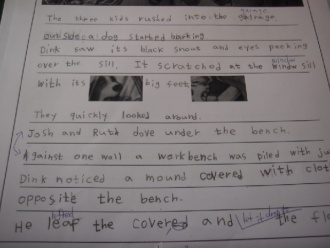 garage
The three kids rushed into the garage
outside a dog started barking
Dink saw its black snout and eyes peeking
window
over the sill. It scratched at the window sill
with its big feet
They quickly looked around.
Josh and Ruth dove under the bench.
Against one wall a workbench was piled with
Dink noticed a mound covered with
opposite the bench.
lifted
He leaf the covered and the